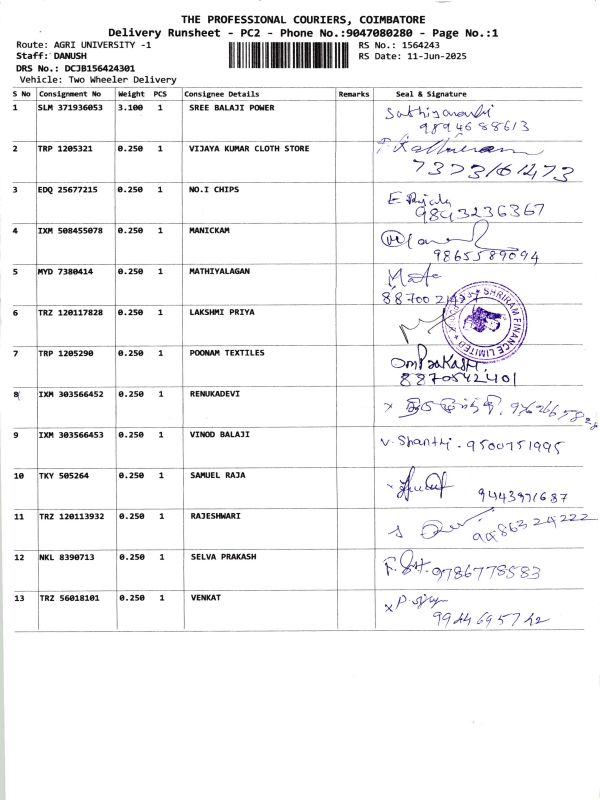 THE PROFESSIONAL COURIERS, COIMBATORE
Delivery Runsheet - PC2 - Phone No.:9047080280 - Page No.:1
Route: AGRI UNIVERSITY -1
RS No.: 1564243
Staff: DANUSH
RS Date: 11-Jun-2025
DRS No.: DCJB156424301
Vehicle: Two Wheeler Delivery
S No Consignment No Weight PCS Consignee Details Remarks Seal & Signature
1 SLM 371936053 3.100 1 SREE BALAJI POWER
9894688613
2 TRP 1205321 0.250 1 VIJAYA KUMAR CLOTH STORE
7373161473
3 EDQ 25677215 0.250 1 NO.I CHIPS
9843236367
4 IXM 508455078 0.250 1 MANICKAM
9865589094
5 MYD 7380414 0.250 1 MATHIYALAGAN
SHRIRAM FINANCE LIMITED
6 TRZ 120117828 0.250 1 LAKSHMI PRIYA
7 TRP 1205290 0.250 1 POONAM TEXTILES
OmPrakash.
8870542401
8 IXM 303566452 0.250 1 RENUKADEVI
9 IXM 303566453 0.250 1 VINOD BALAJI
V. Shanthi. 9500751995
10 TKY 505264 0.250 1 SAMUEL RAJA
9443971687
11 TRZ 120113932 0.250 1 RAJESHWARI
9486324222
12 NKL 8390713 0.250 1 SELVA PRAKASH
9786778583
13 TRZ 56018101 0.250 1 VENKAT
9944695742